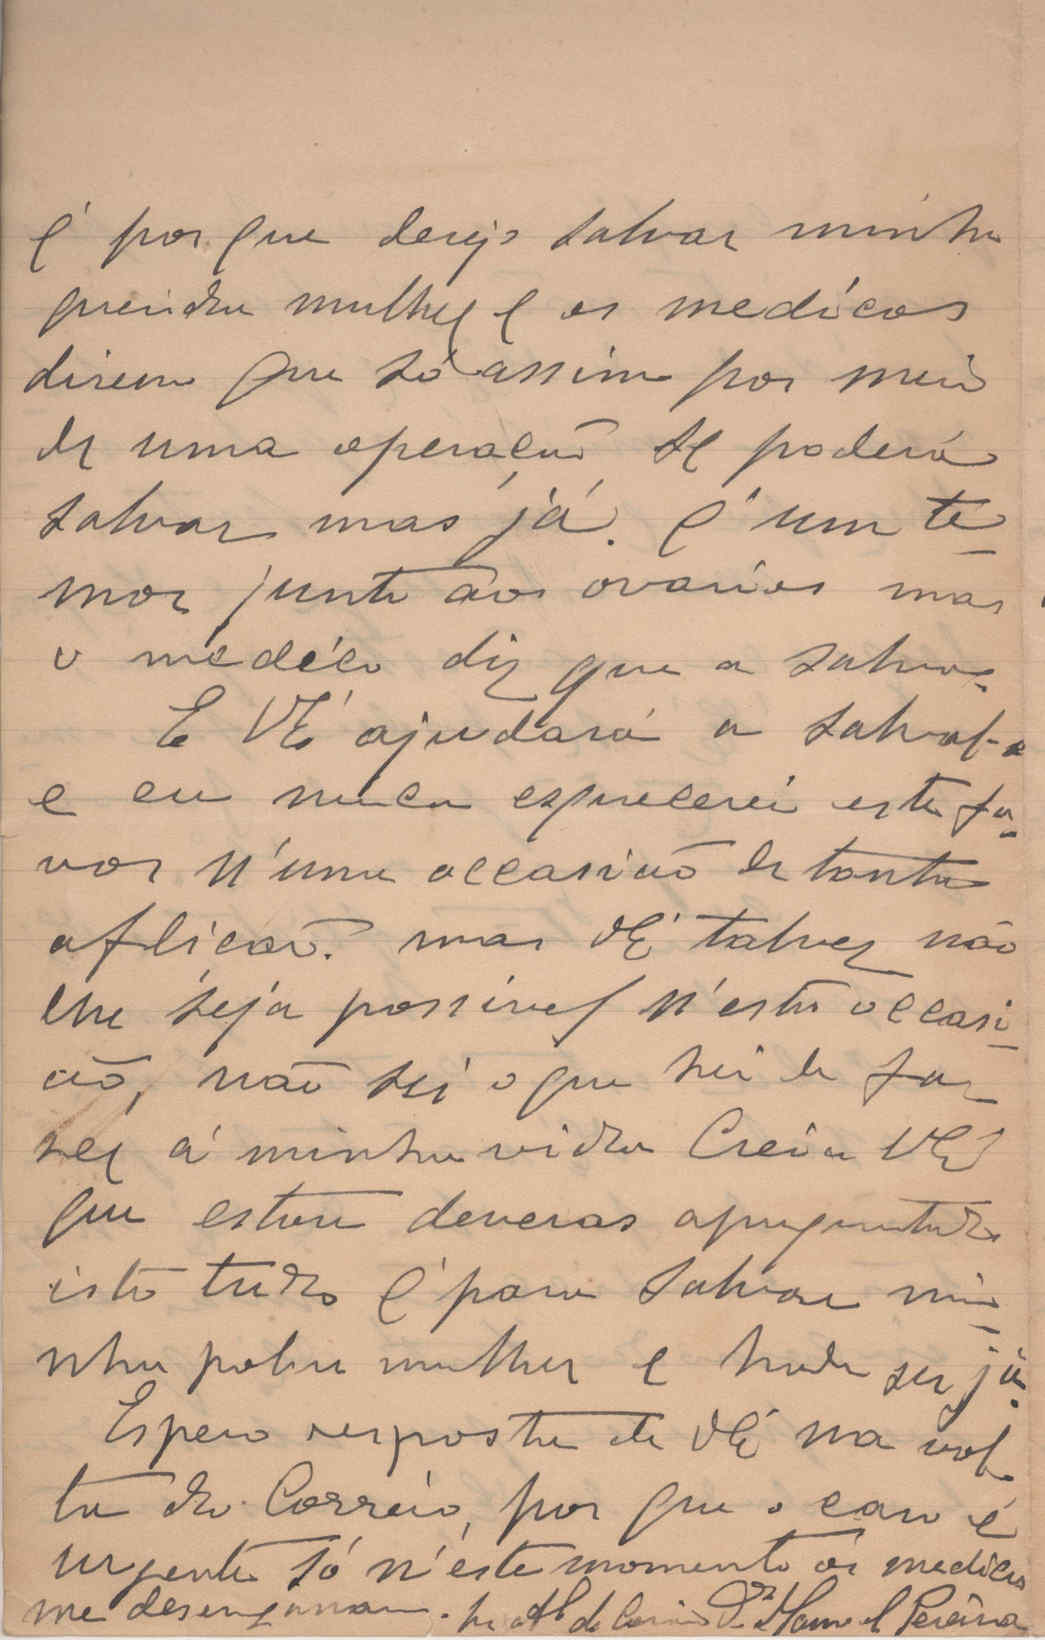 é por que desejo salvar minha
querida mulher e os medicos
disem que só assim por meio
de uma operação se poderá
salvar mas já. É um te-
mor junto aos ovarios mas
o medico diz que a salva.
E VEª ajudará a salval-a
e eu nunca esquecerei este fa-
vor n'uma occasião de tanta
aflicão. mas VEª talvez não
lhe seja possivel n'esta occasi-
ão, não sei o que hei de fa-
zer á minha vida Creia VEª
que estou deveras apoquentado
isto tudo é para salvar mi-
nha pobre mulher e hade ser já.
Espero resposta de VEª na vol-
ta do Correio, por que o caso é
urgente só n'este momento os medicos
me desenganaram. Dr. Manoel Pereira